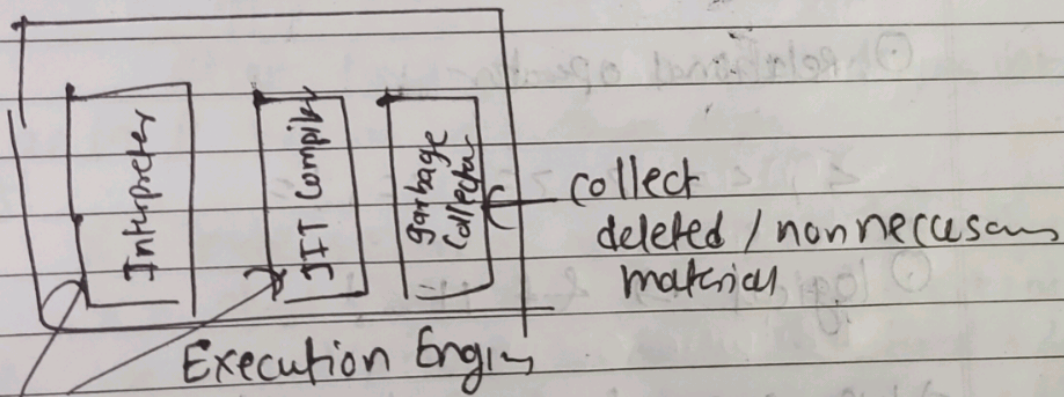 Interpreter
JIT Compiler
garbage
Collector
collect
deleted / non neccesary
material
Execution Engin